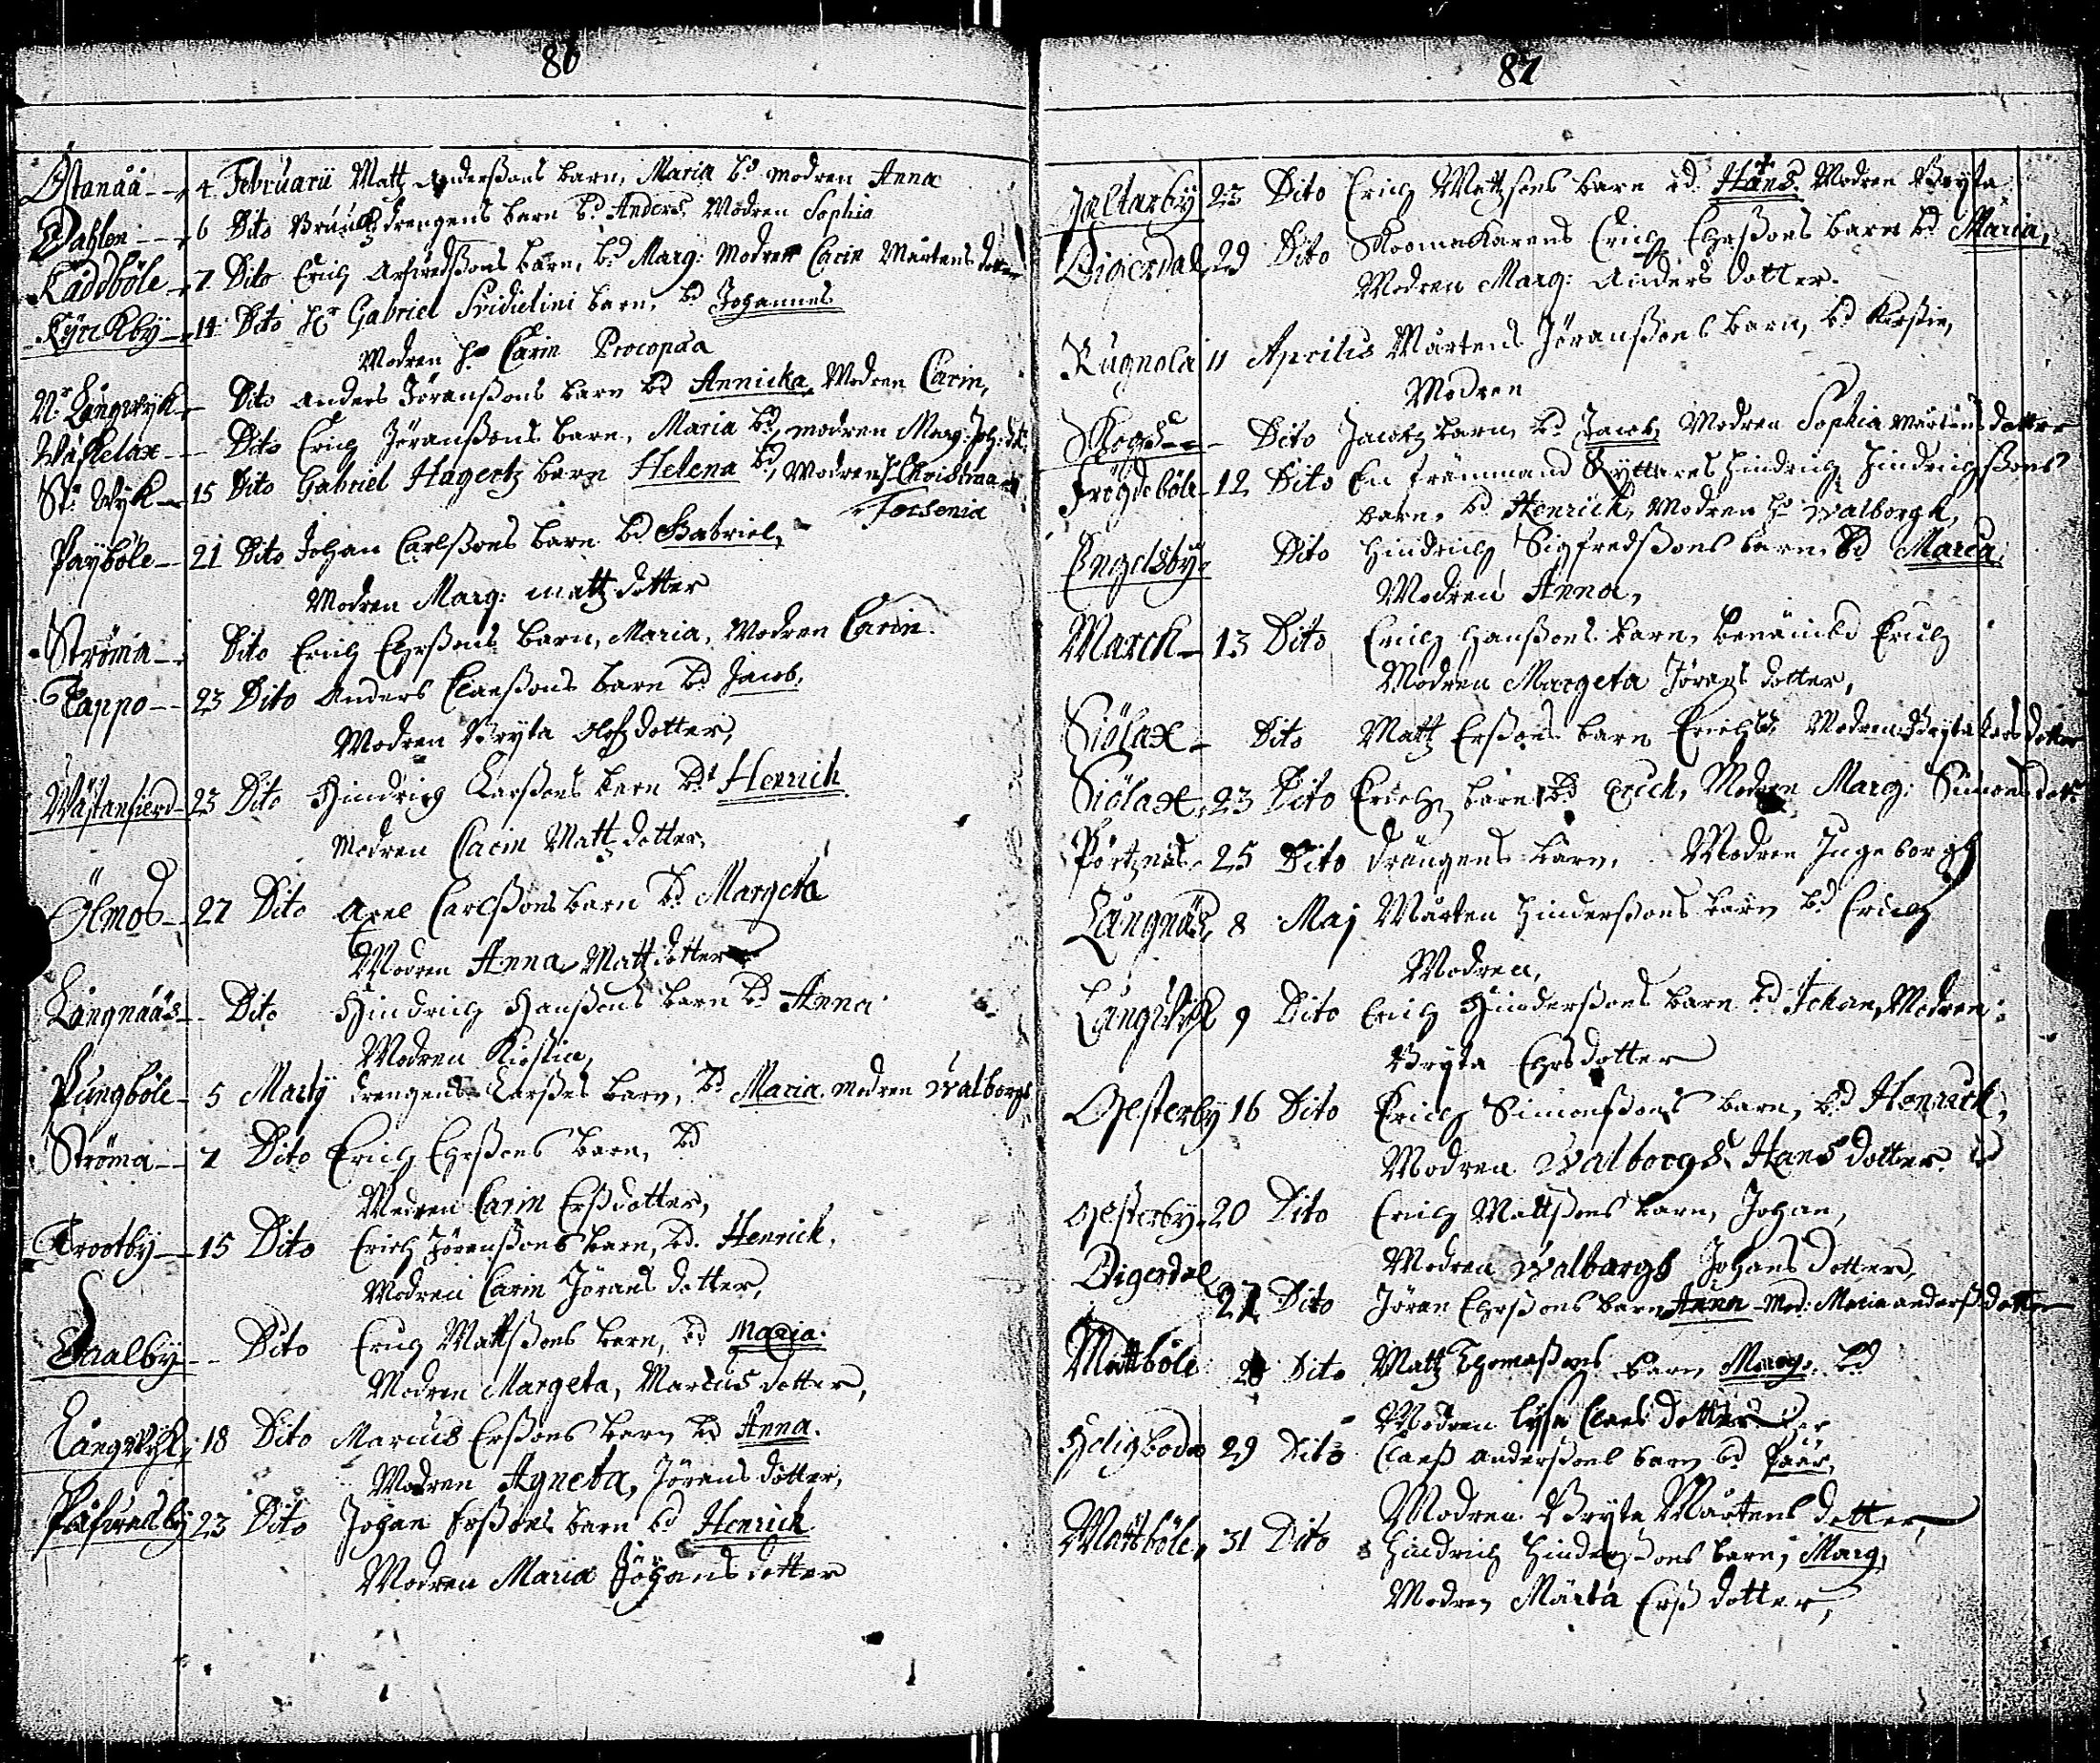 86
Östanåå 4 Februarii Matz Anderßons barn, Maria bd modren Anna
Dahlen 6 Dito Bruuksdrengens barn bd Anders, Modren Sophia
Kåddböle 7 Dito Erich Arfuedßons barn, bd Marg: Modren Carin Mårtens dotter
Kyrckby 14 Dito Hr Gabriel barn, bd Johannes
Modren H. Carin Procopæa
Nr Långwyk Dito Anders Jöranßons barn bd Annicka, Modren Carin,
Wäskelax Dito Erich Jöranßons barn, Maria bd, modren Marg: Joh: dtr
St: Wyk 15 Dito Gabriel Hagertz barn Helena bd, Modren H. Christina
Forsenia
Payböle 21 Dito Johan Carlßons barn bd Gabriel,
Modren Marg: Matz dotter
Ströma Dito Erich Ehrßons barn, Maria, Modren Carin.
Tappo 23 Dito Anders Claeßons barn bd Jacob,
Modren Bryta Olofz dotter,
Wästanfierd 23 Dito Hindrig Larßons barn bd Henrich
Modren Carin Matz dotter,
Ölmos 27 Dito Axel Carlßons barn bd Margeta
Modren Anna Matz dotter
Långnääs Dito Hindrich Hanßons barn bd Anna
Modren Kirstin,
Pungböle 5 Martij drengens Larßes barn, bd Maria. modren Walborg
Ströma 7 Dito Erich Ehrßons barn, bd
Modren Carin Erßdotter,
Trootby 15 Dito Erich Jöranßons barn, bd. Henrick,
Modren Carin Jörans dotter,
Daalby Dito Erich Mattßons barn, bd Maria.
Modren Margeta, Marcus dotter,
Långwyk 18 Dito Marcus Erßons barn bd Anna.
Modren Agneta, Jörens dotter,
Påfwalsby 23 Dito Johan Erßons barn bd Henrich
Modren Maria Johans dotter
87
Jaltarby 23 Dito Erich Matzsons barn bd Hans. Modren Bryta
Digerdal 29 Dito Skoomakarens Erich Ehrßons barn bd Maria,
Modren Marg: Anders dotter.
Rugnola 11 Aprilis Mårtens Jöranßons barn, bd Kirstin,
Modren
Skogs Dito Jacobz barn, bd Jacob, Modren Sophia Mårtens dotter
Fröjdeböle 12 Dito En främmand Ryttares Hindrich Hindrichßons
barn, bd Henrich, Modren H. Walborgh,
Engelsby Dito Hindrich Sigfredßons barn, bd Maria,
Modren Anna,
Marck 13 Dito Erich Hanßons barn, benämbd Erich
Modren Margeta Jörans dotter,
Siölax Dito Matz Erßons barn Erich bd, Modren Bryta Lars dotter
Siölax 23 Dito Erichz barn bd Erich, Modren Marg: Simons dotr
Pörtznäs 25 Dito drängens barn, Modren Ingeborgh
Långnäs, 8 Maj Mårten Hinderßons barn bd Erich
Modren,
Långwik 9 Dito Erich Hinderßons barn bd Johan, Modren:
Bryta Ehrsdotter
Oesterby 16 Dito Erich Simonßons barn, bd Henrich,
Modren Walborgh Hans dotter
Oesterby 20 Dito Erich Mattßons barn, Johan,
Modren Walbargh Johans dotter,
Digerdal 27 Dito Jöran Ehrßons barn Anna Mod: Maria anderß dotter
Mattböle 28 Dito Matz Thomaßons barn Marg. bd
Modren Lysa Claes dotter
Heligboda 29 Dito Claeß Anderßons barn bd Påår,
Modren Bryta Mårtens dotter,
Mattböle, 31 Dito Hindrich Hinderßons barn, Marg,
Modren Märta Erß dotter,